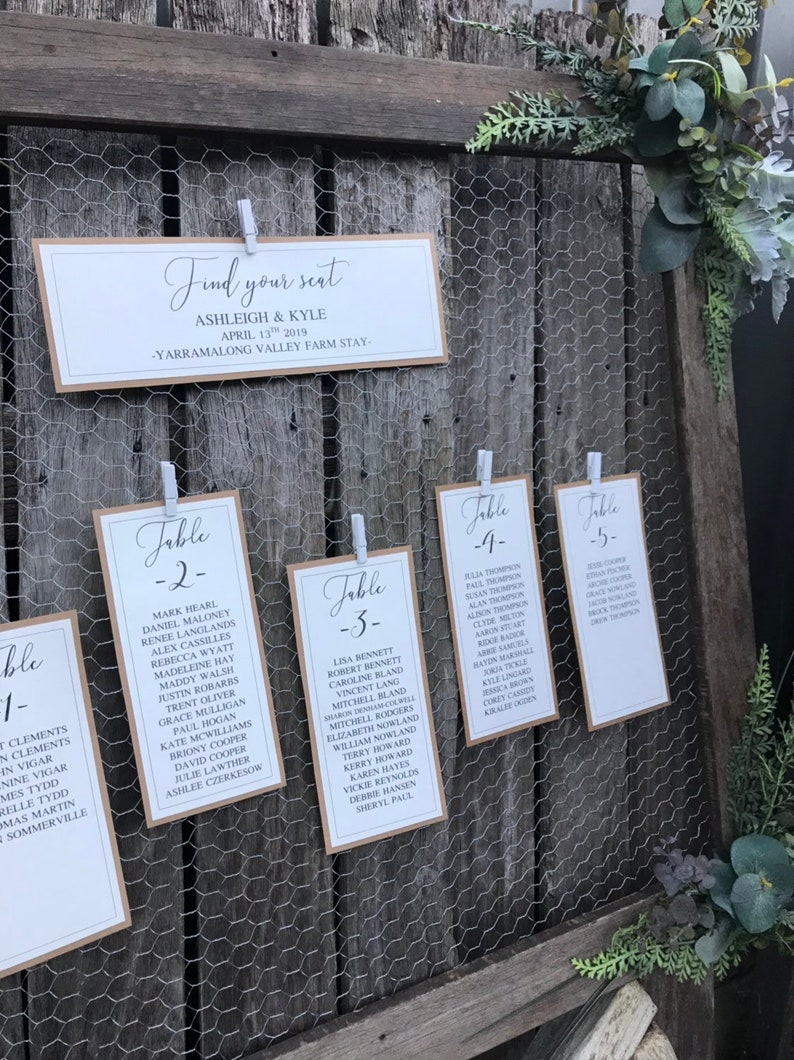 Find your seat
ASHLEIGH & KYLE
APRIL 13TH 2019
-YARRAMALONG VALLEY FARM STAY-
-1-
CLEMENTS
CLEMENTS
VIGAR
VIGAR
TYDD
TYDD
MARTIN
SOMMERVILLE
Table
-2-
MARK HEARL
DANIEL MALONEY
RENEE LANGLANDS
ALEX CASSILLES
REBECCA WYATT
MADELEINE HAY
MADDY WALSH
JUSTIN ROBARBS
TRENT OLIVER
GRACE MULLIGAN
PAUL HOGAN
KATE MCWILLIAMS
BRIONY COOPER
DAVID COOPER
JULIE LAWTHER
ASHLEE CZERKESOW
Table
-3-
LISA BENNETT
ROBERT BENNETT
CAROLINE BLAND
VINCENT LANG
MITCHELL BLAND
SHARON DENHAM-COLWELL
MITCHELL RODGERS
ELIZABETH NOWLAND
WILLIAM NOWLAND
TERRY HOWARD
KERRY HOWARD
KAREN HAYES
VICKIE REYNOLDS
DEBBIE HANSEN
SHERYL PAUL
Table
-4-
JULIA THOMPSON
PAUL THOMPSON
SUSAN THOMPSON
ALAN THOMPSON
ALISON THOMPSON
CLYDE MILTON
AARON STUART
RIDGE BADIOR
ABBIE SAMUELS
HAYDN MARSHALL
JORJA TICKLE
KYLE LINGARD
JESSICA BROWN
COREY CASSIDY
KIRALEE OGDEN
Table
-5-
JESSE COOPER
ETHAN FISCHER
ARCHIE COOPER
GRACE NOWLAND
JACOB NOWLAND
BROCK THOMPSON
DREW THOMPSON